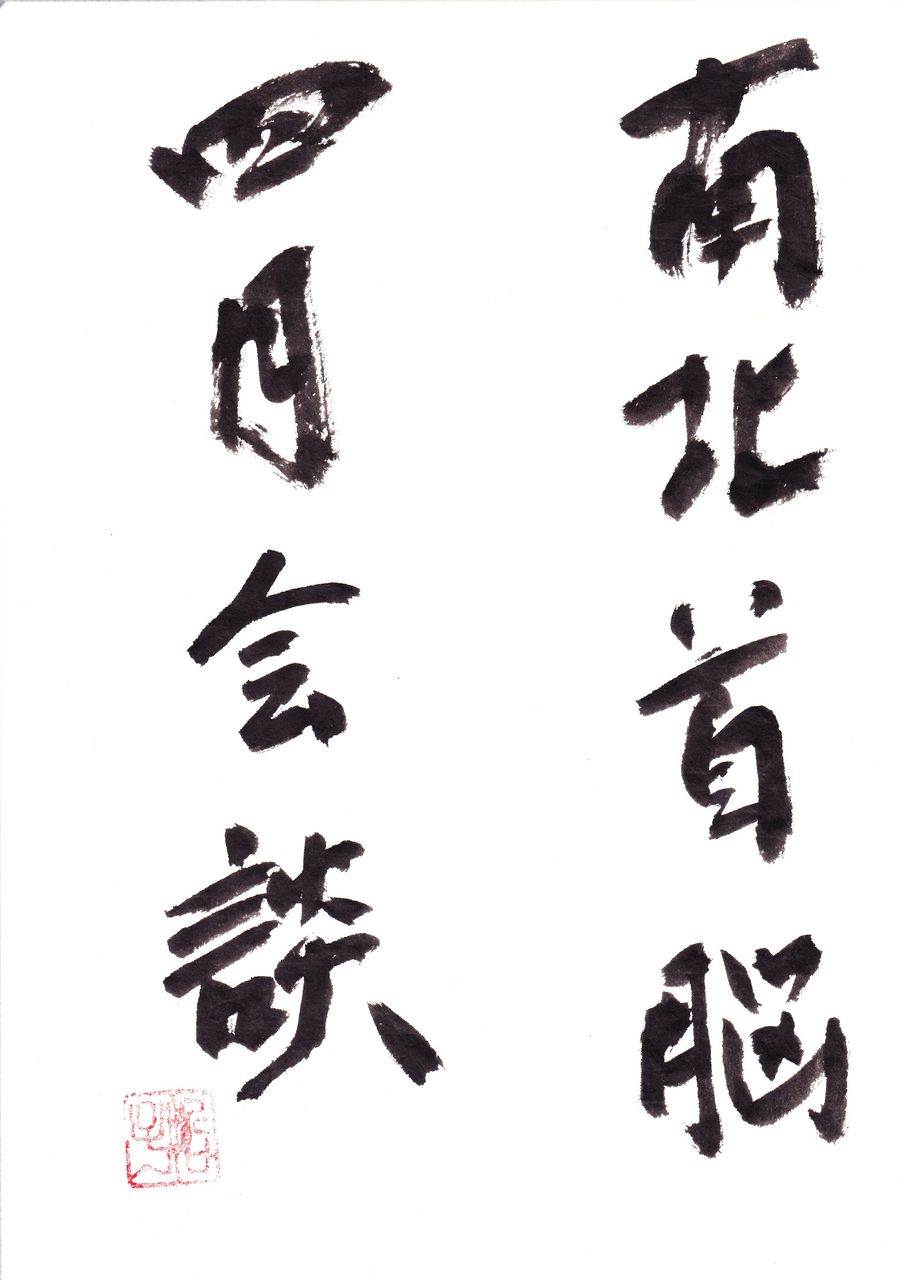 南北首脳
四月会談